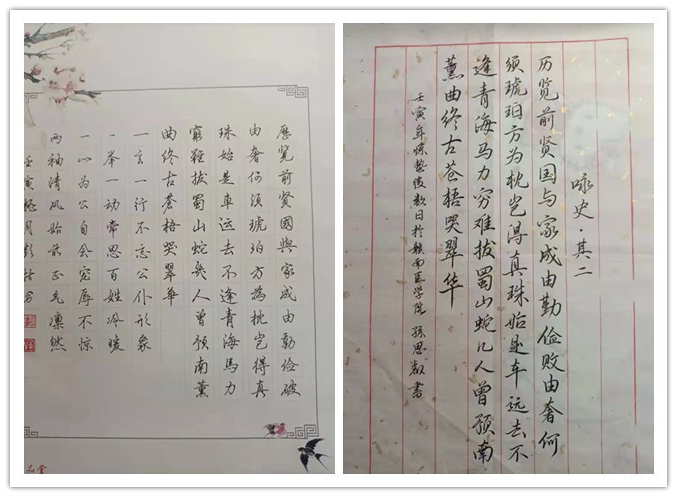 歷覽前賢國與家成由勤儉破
由奢何須琥珀方為枕豈得真
珠始是車遠去不逢青海馬力
窮難拔蜀山蛇幾人曾預南薰
曲終古蒼梧哭翠華
一言一行不忘公仆形象
一举一动常思百姓冷暖
一心为公自会宠辱不惊
两袖清风始能正气凛然
壬寅 月彭 书
咏史·其二
历览前贤国与家成由勤俭败由奢何
须琥珀方为枕岂得真珠始是车远去不
逢青海马力穷难拔蜀山蛇几人曾预南
薰曲终古苍梧哭翠华
壬寅年惊蛰后数日於赣南医学院 孙思 书